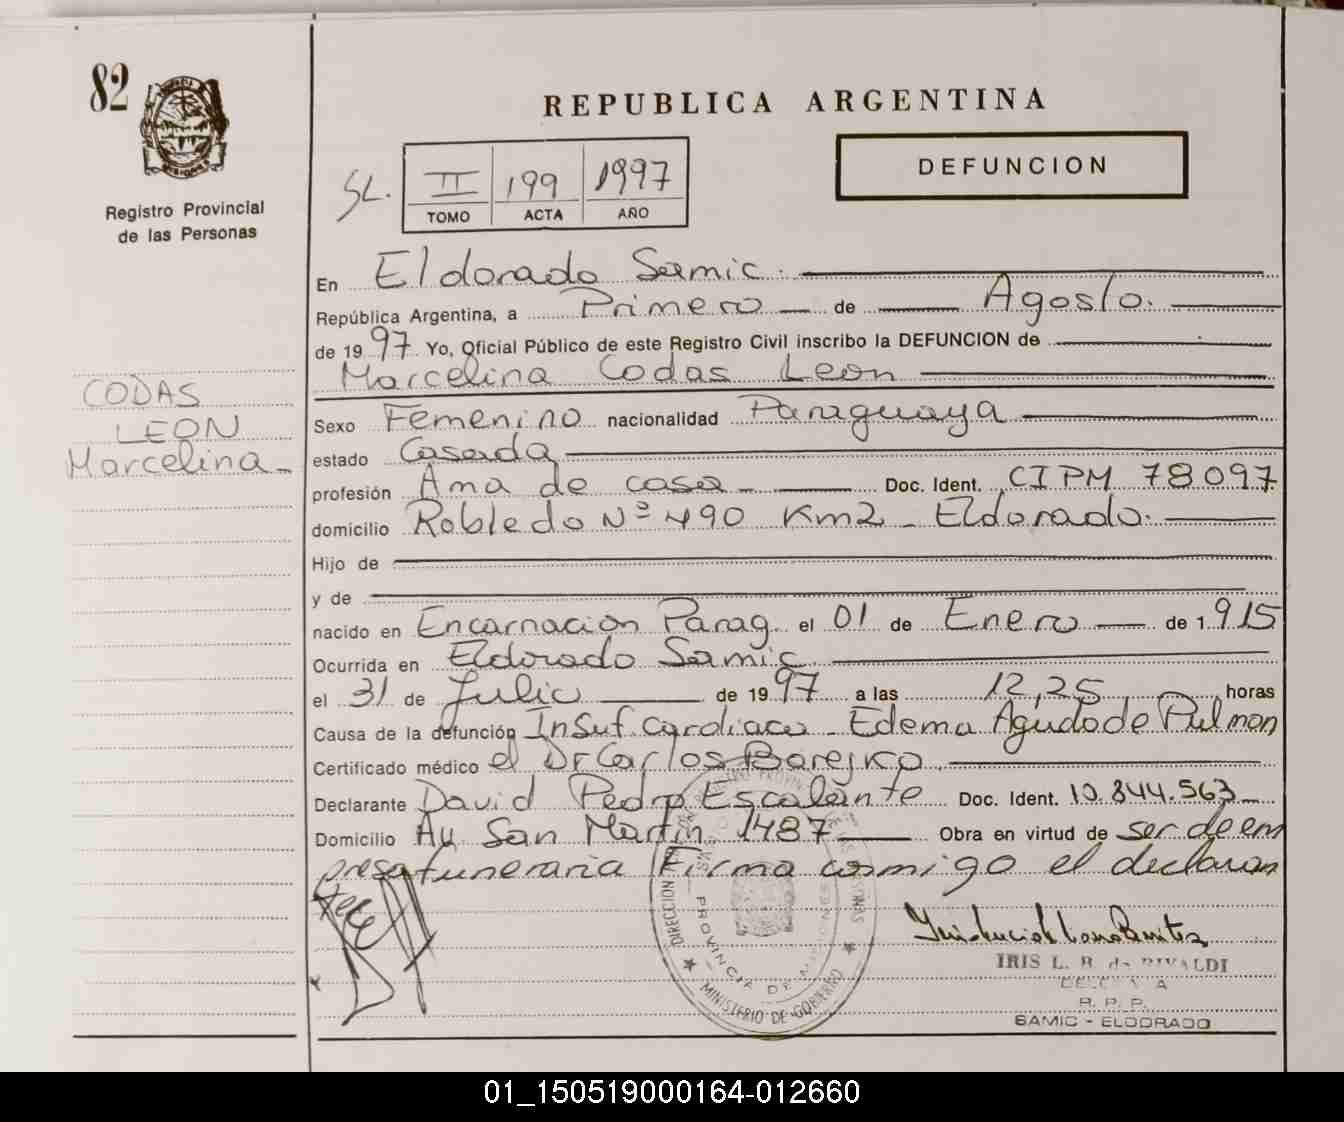 82
REPUBLICA ARGENTINA
DEFUNCION
SL. II 199 1997
TOMO ACTA AÑO
Registro Provincial
de las Personas
En Eldorado Samic.
República Argentina, a Primero de Agosto.
de 19 97 Yo, Oficial Público de este Registro Civil inscribo la DEFUNCION de
Marcelina Codas Leon
CODAS
LEON
Marcelina
Sexo Femenino nacionalidad Paraguaya
estado Casada
profesión Ama de casa Doc. Ident. CIPM 78097
domicilio Robledo Nº 490 Km2 - Eldorado.
Hijo de
y de
nacido en Encarnacion Parag. el 01 de Enero de 1.915
Ocurrida en Eldorado Samic
el 31 de Julio de 19 97 a las 12,25 horas
Causa de la defunción Insuf. Cardiaca - Edema Agudo de Pulmon
Certificado médico el Dr Carlos Borejko
Declarante David Pedro Escalante Doc. Ident. 10.844.563
Domicilio Av San Martin 1487 Obra en virtud de ser de em
presa funeraria Firma conmigo el declaran
te
DIRECCION PROVINCIA DE MISIONES
MINISTERIO DE GOBIERNO
IRIS L. B. de RIVALDI
DELEGADA
R. P. P.
SAMIC - ELDORADO
01_150519000164-012660